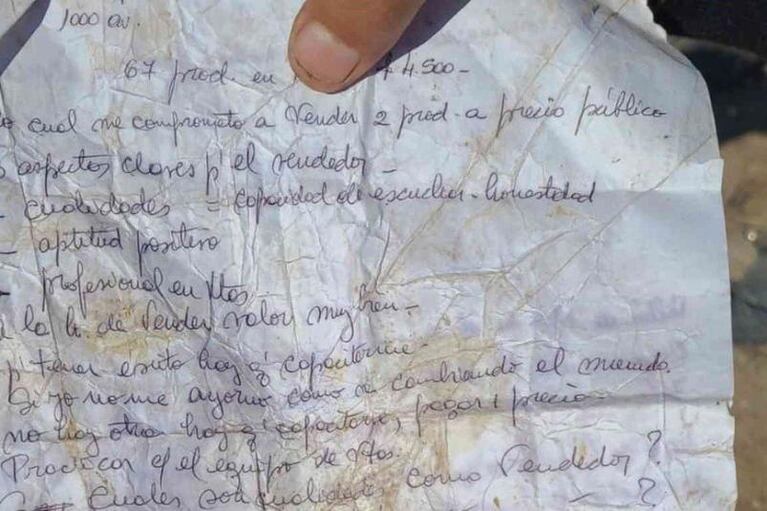 1000 av.
67 prod. en 4.500-
cual me comprometo a Vender 2 prod. a precio público
aspectos claves p' el vendedor -
- cualidades = capacidad de escuchar - honestidad
- aptitud positivo
- profesional en Vtas.
la h. de Vender valor muy bien -
p' tener éxito hay q' capacitarme -
Si yo no me ayorno como va cambiando el mundo.
no hay otra hay q' capacitarse, pagar 1 precio -
Practicar c/ el equipo de Vtas.
Cuales son cualidades como Vendedor ?
- ?